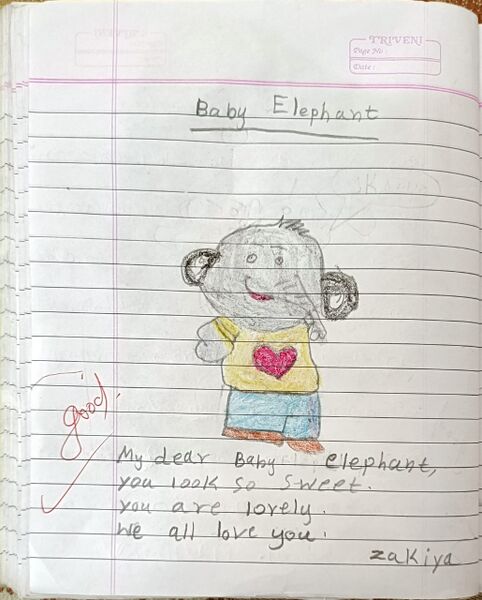 TRIVENI
Page No :
Date :
Baby Elephant
good.
My dear Baby elephant,
you look so sweet.
you are lovely.
we all love you.
zakiya